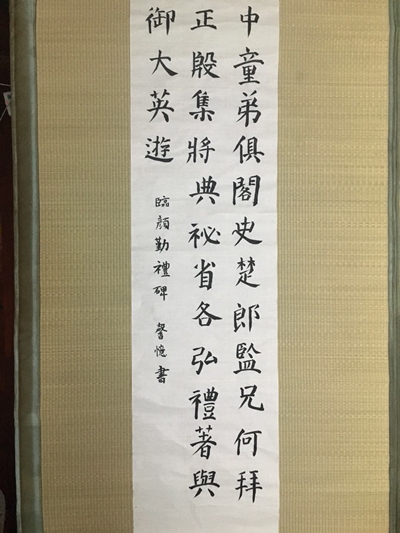 中童弟俱閣史楚郎監兄何拜
正殿集將典祕省各弘禮著與
御大英遊
臨顏勤禮碑 馨憶書